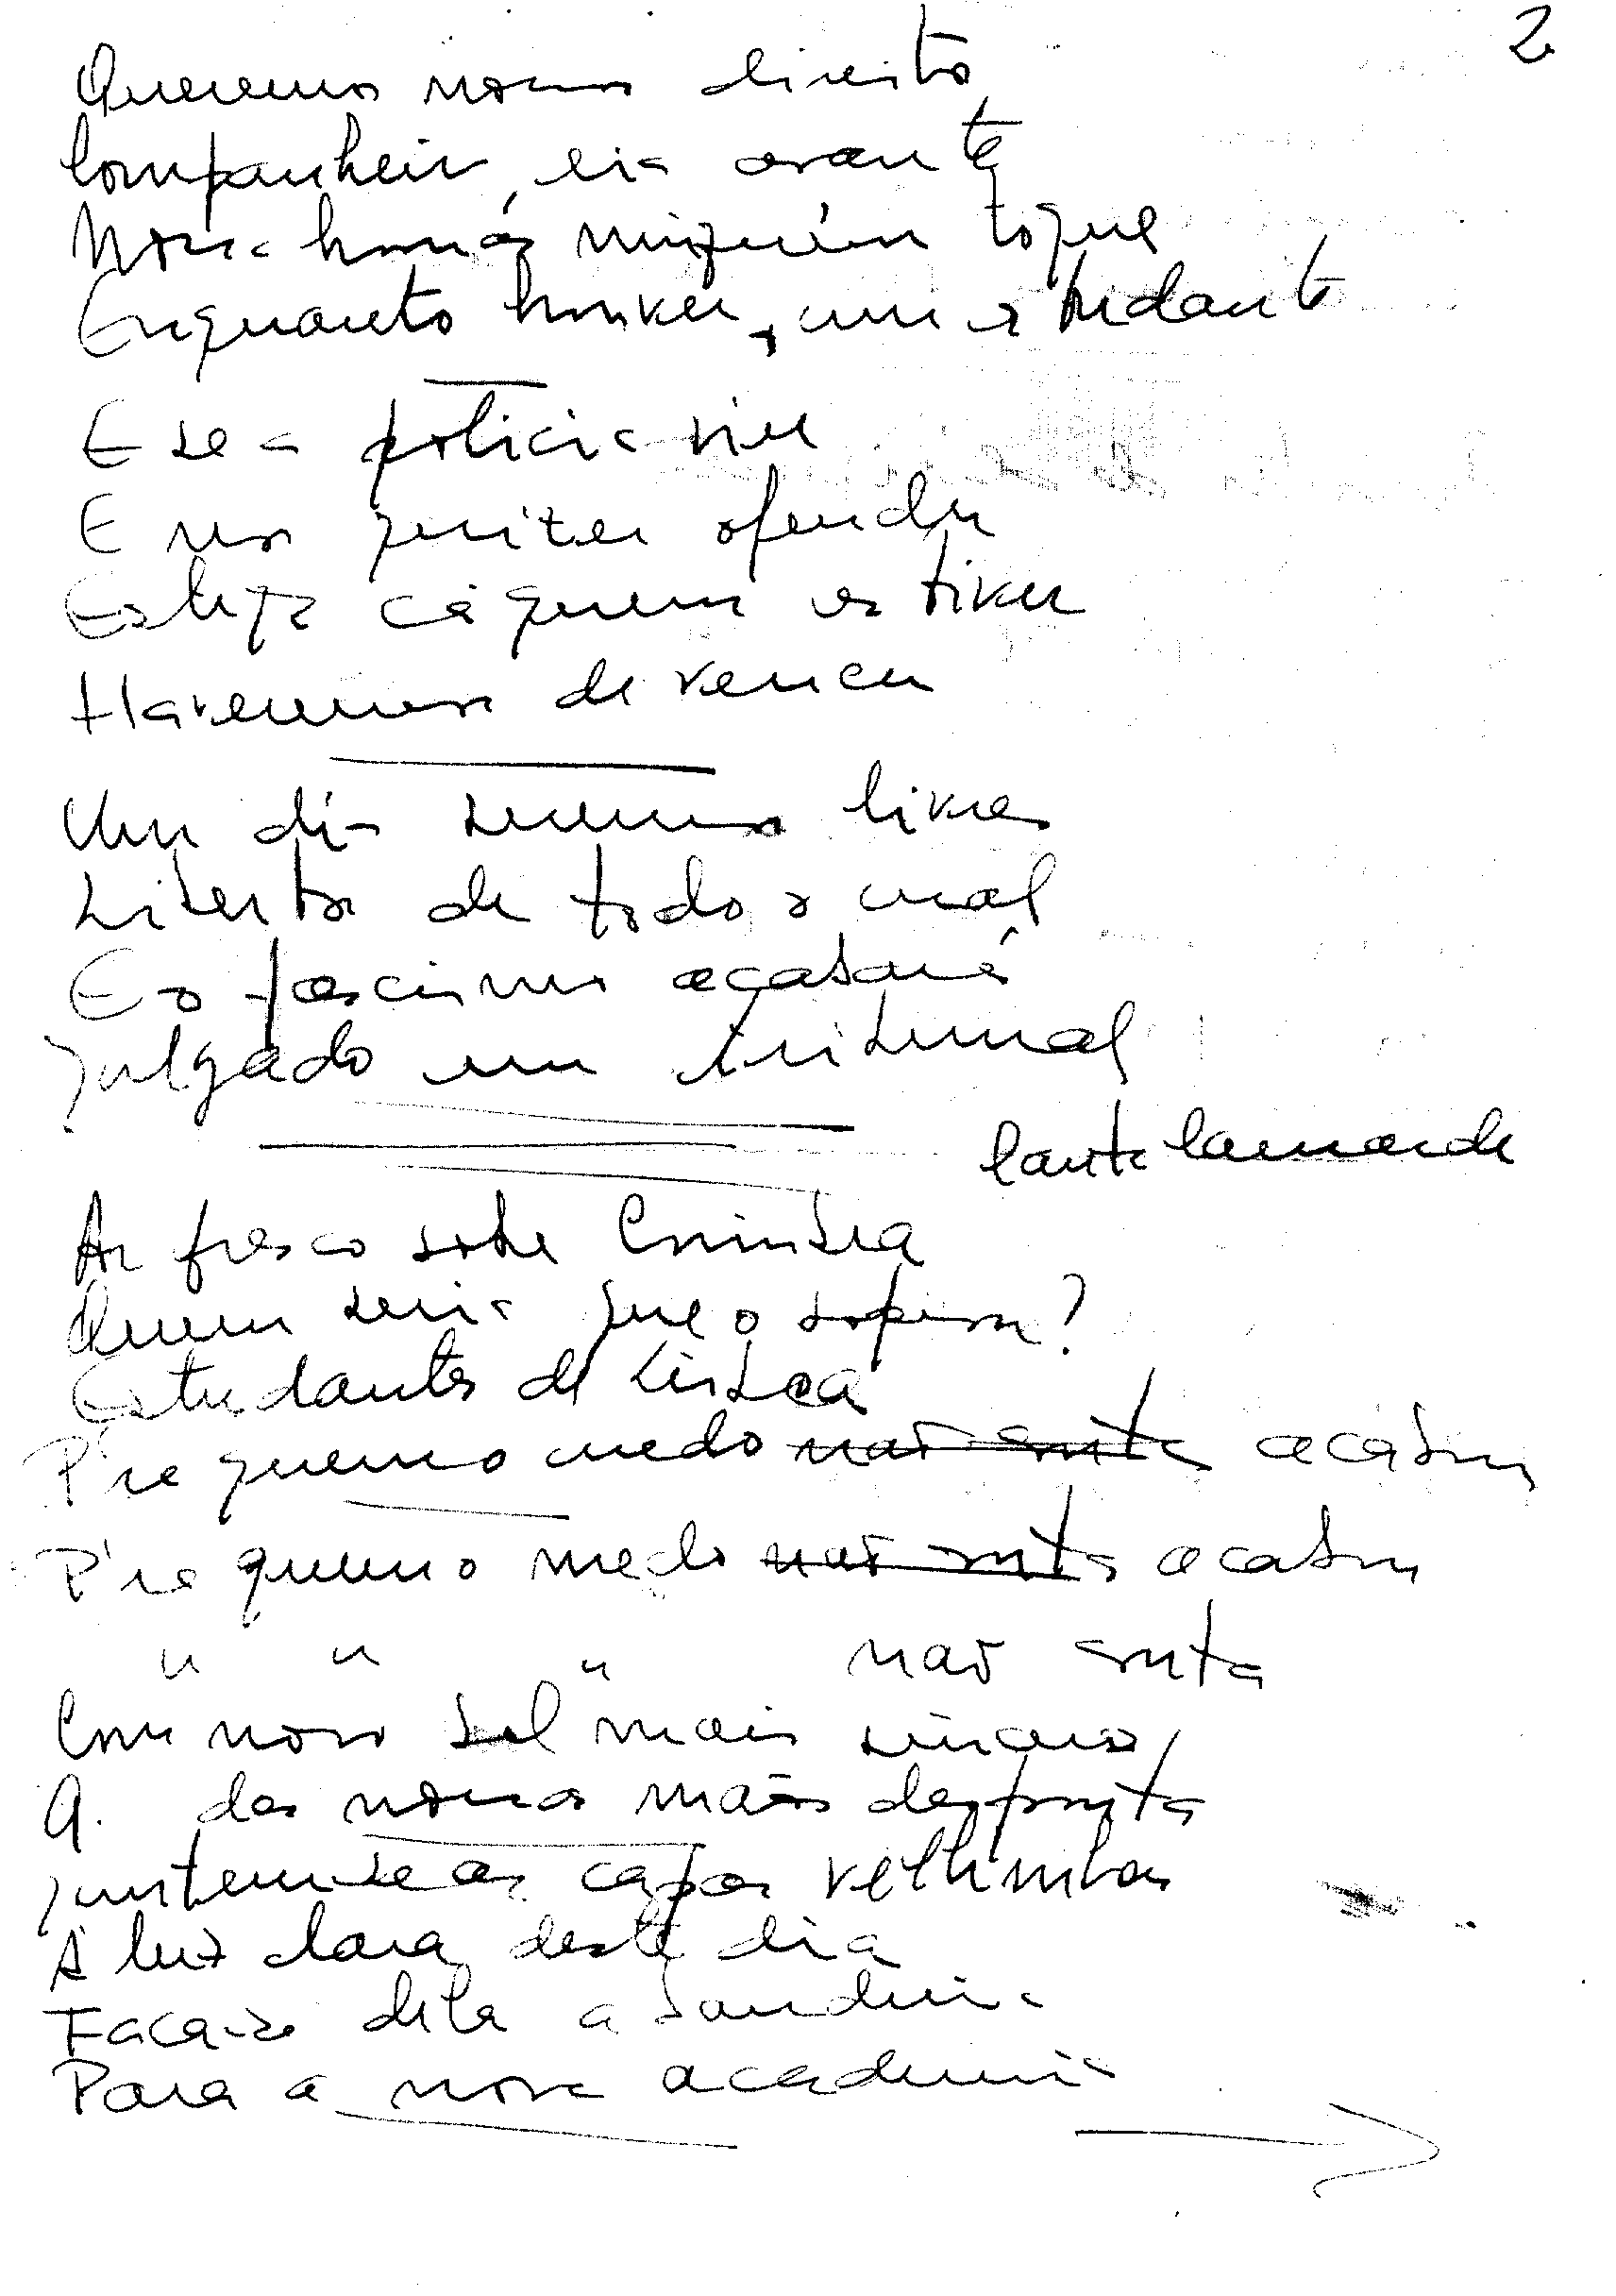 2
Queremos nossos direitos
Companheiro, eia avante
Nossa honra ninguém toque
Enquanto houver, um estudante
E se a policia vier
E nos quizer ofender
Esteja cá quem estiver
Havemos de vencer
Um dia seremos livres
Libertos de todo o mal
E o fascismo acabará
Julgado em tribunal
Cantelamarde
Ar fresco sobre Coimbra
Quem seria que o soprou?
Estudantes de Lisboa
P'ra que no medo não conta acabou
P'ra que no medo não conta acabou
" " " não conta
Com novo sol mais sincero
A. das nossas mãos desponta
Juntem-se as capas velhinhas
À luz clara deste dia
Faça-se dela a bandeira
Para a nova academia